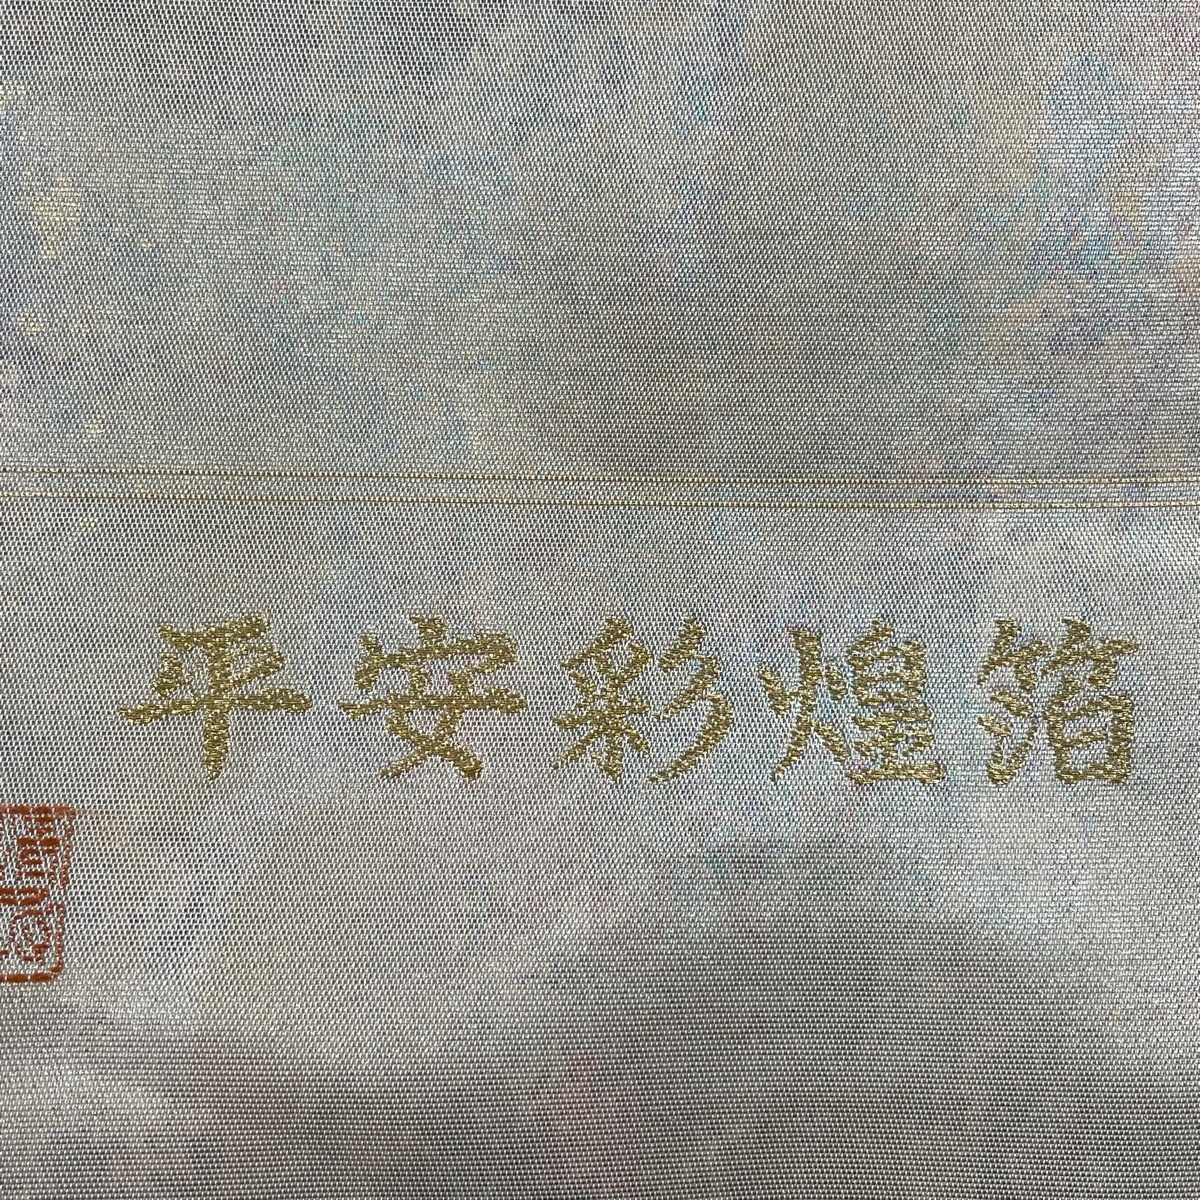 平安彩煌箔